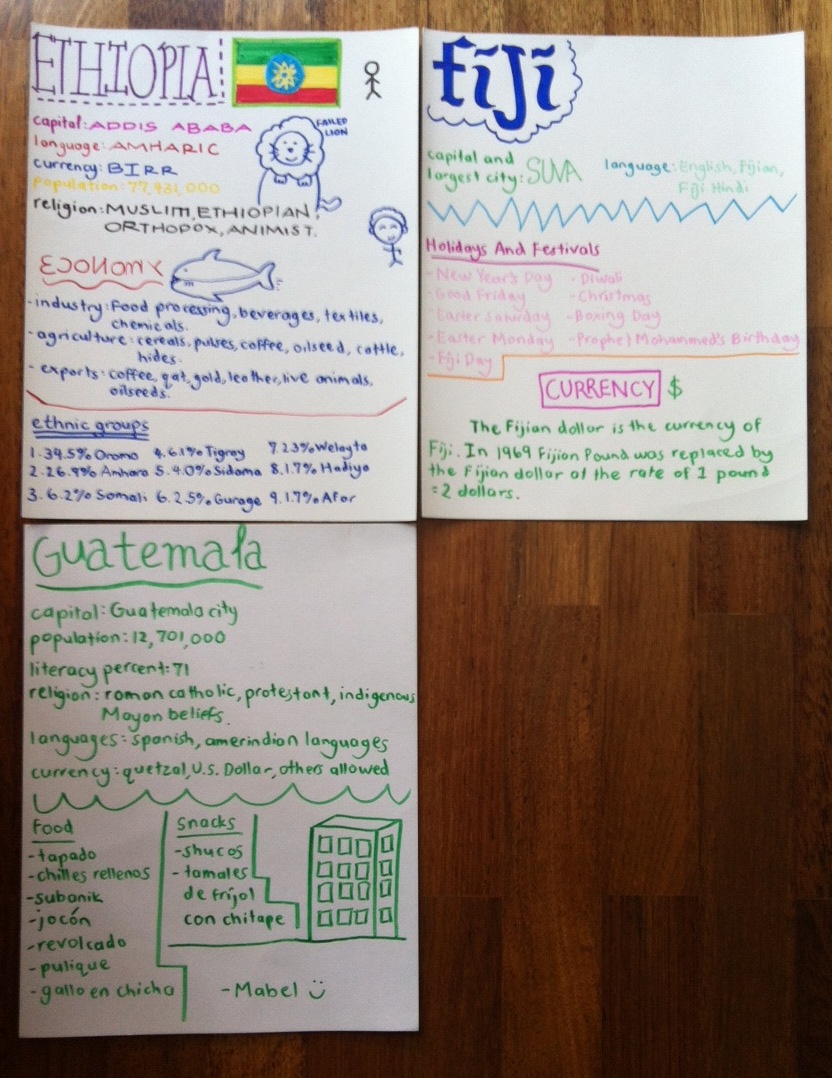 ETHIOPIA
FAILED
LION
capital: ADDIS ABABA
language: AMHARIC
currency: BIRR
population: 77,431,000
religion: MUSLIM, ETHIOPIAN,
ORTHODOX, ANIMIST.
ECONOMY
-industry: Food processing, beverages, textiles,
chemicals.
-agriculture: cereals, pulses, coffee, oilseed, cattle,
hides.
- exports: coffee, qat, gold, leather, live animals,
oilseeds.
ethnic groups
1.34.5% Oromo 4.6.1% Tigray 7.2.3% Welayta
2.26.9% Amhara 5.4.0% Sidama 8.1.7% Hadiya
3.6.2% Somali 6.2.5% Gurage 9.1.7% Afar
fiji
capital and
largest city: SUVA
language: English, Fijian,
Fiji Hindi
Holidays And Festivals
-New Year's Day - Diwali
-Good Friday -Christmas
-Easter Saturday -Boxing Day
-Easter Monday -Prophet Mohammed's Birthday
-Fiji Day
CURRENCY $
The Fijian dollar is the currency of
Fiji. In 1969 Fijian Pound was replaced by
the Fijian dollar at the rate of 1 pound
=2 dollars.
Guatemala
capital: Guatemala city
population: 12,701,000
literacy percent: 71
religion: roman catholic, protestant, indigenous
Mayan beliefs.
languages: spanish, amerindian languages
currency: quetzal, U.S. Dollar, others allowed
Food
-tapado
-chilles rellenos
-subanik
-jocón
-revolcado
-pulique
-gallo en chicha
Snacks
-shucos
- tamales
de frijol
con chitape
-Mabel